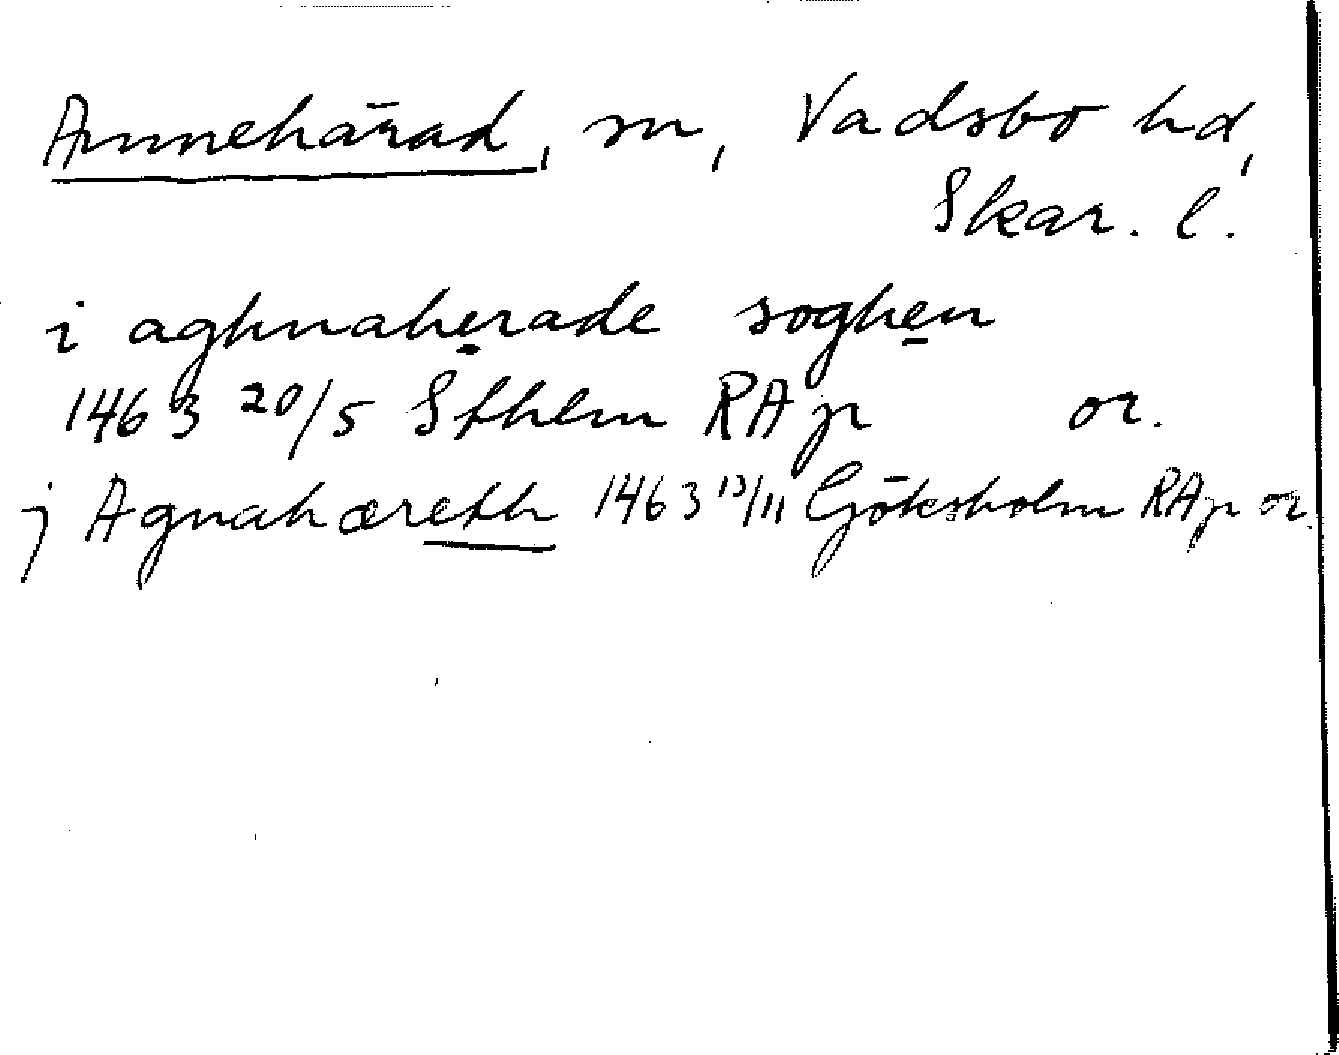 Amnehärad, sn, Vadsbo hd,
Skar. l.
i aghnaherade soghen
1463 20/5 Sthlm RAp or.
j Agnahæreth 1463 13/11 Göksholm RAp or.